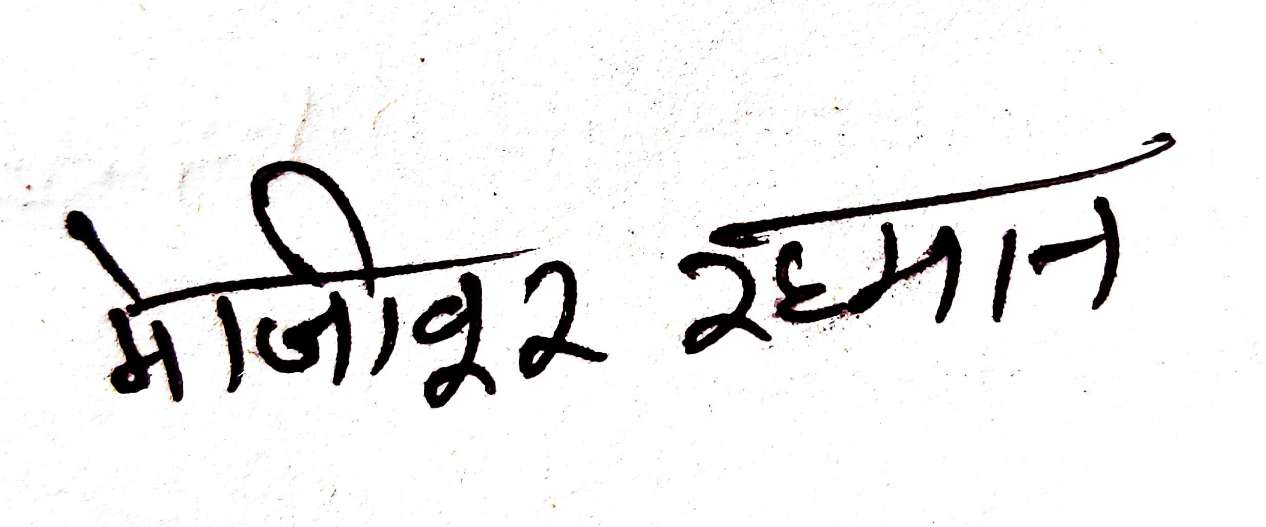 मोजीवूर रहमान